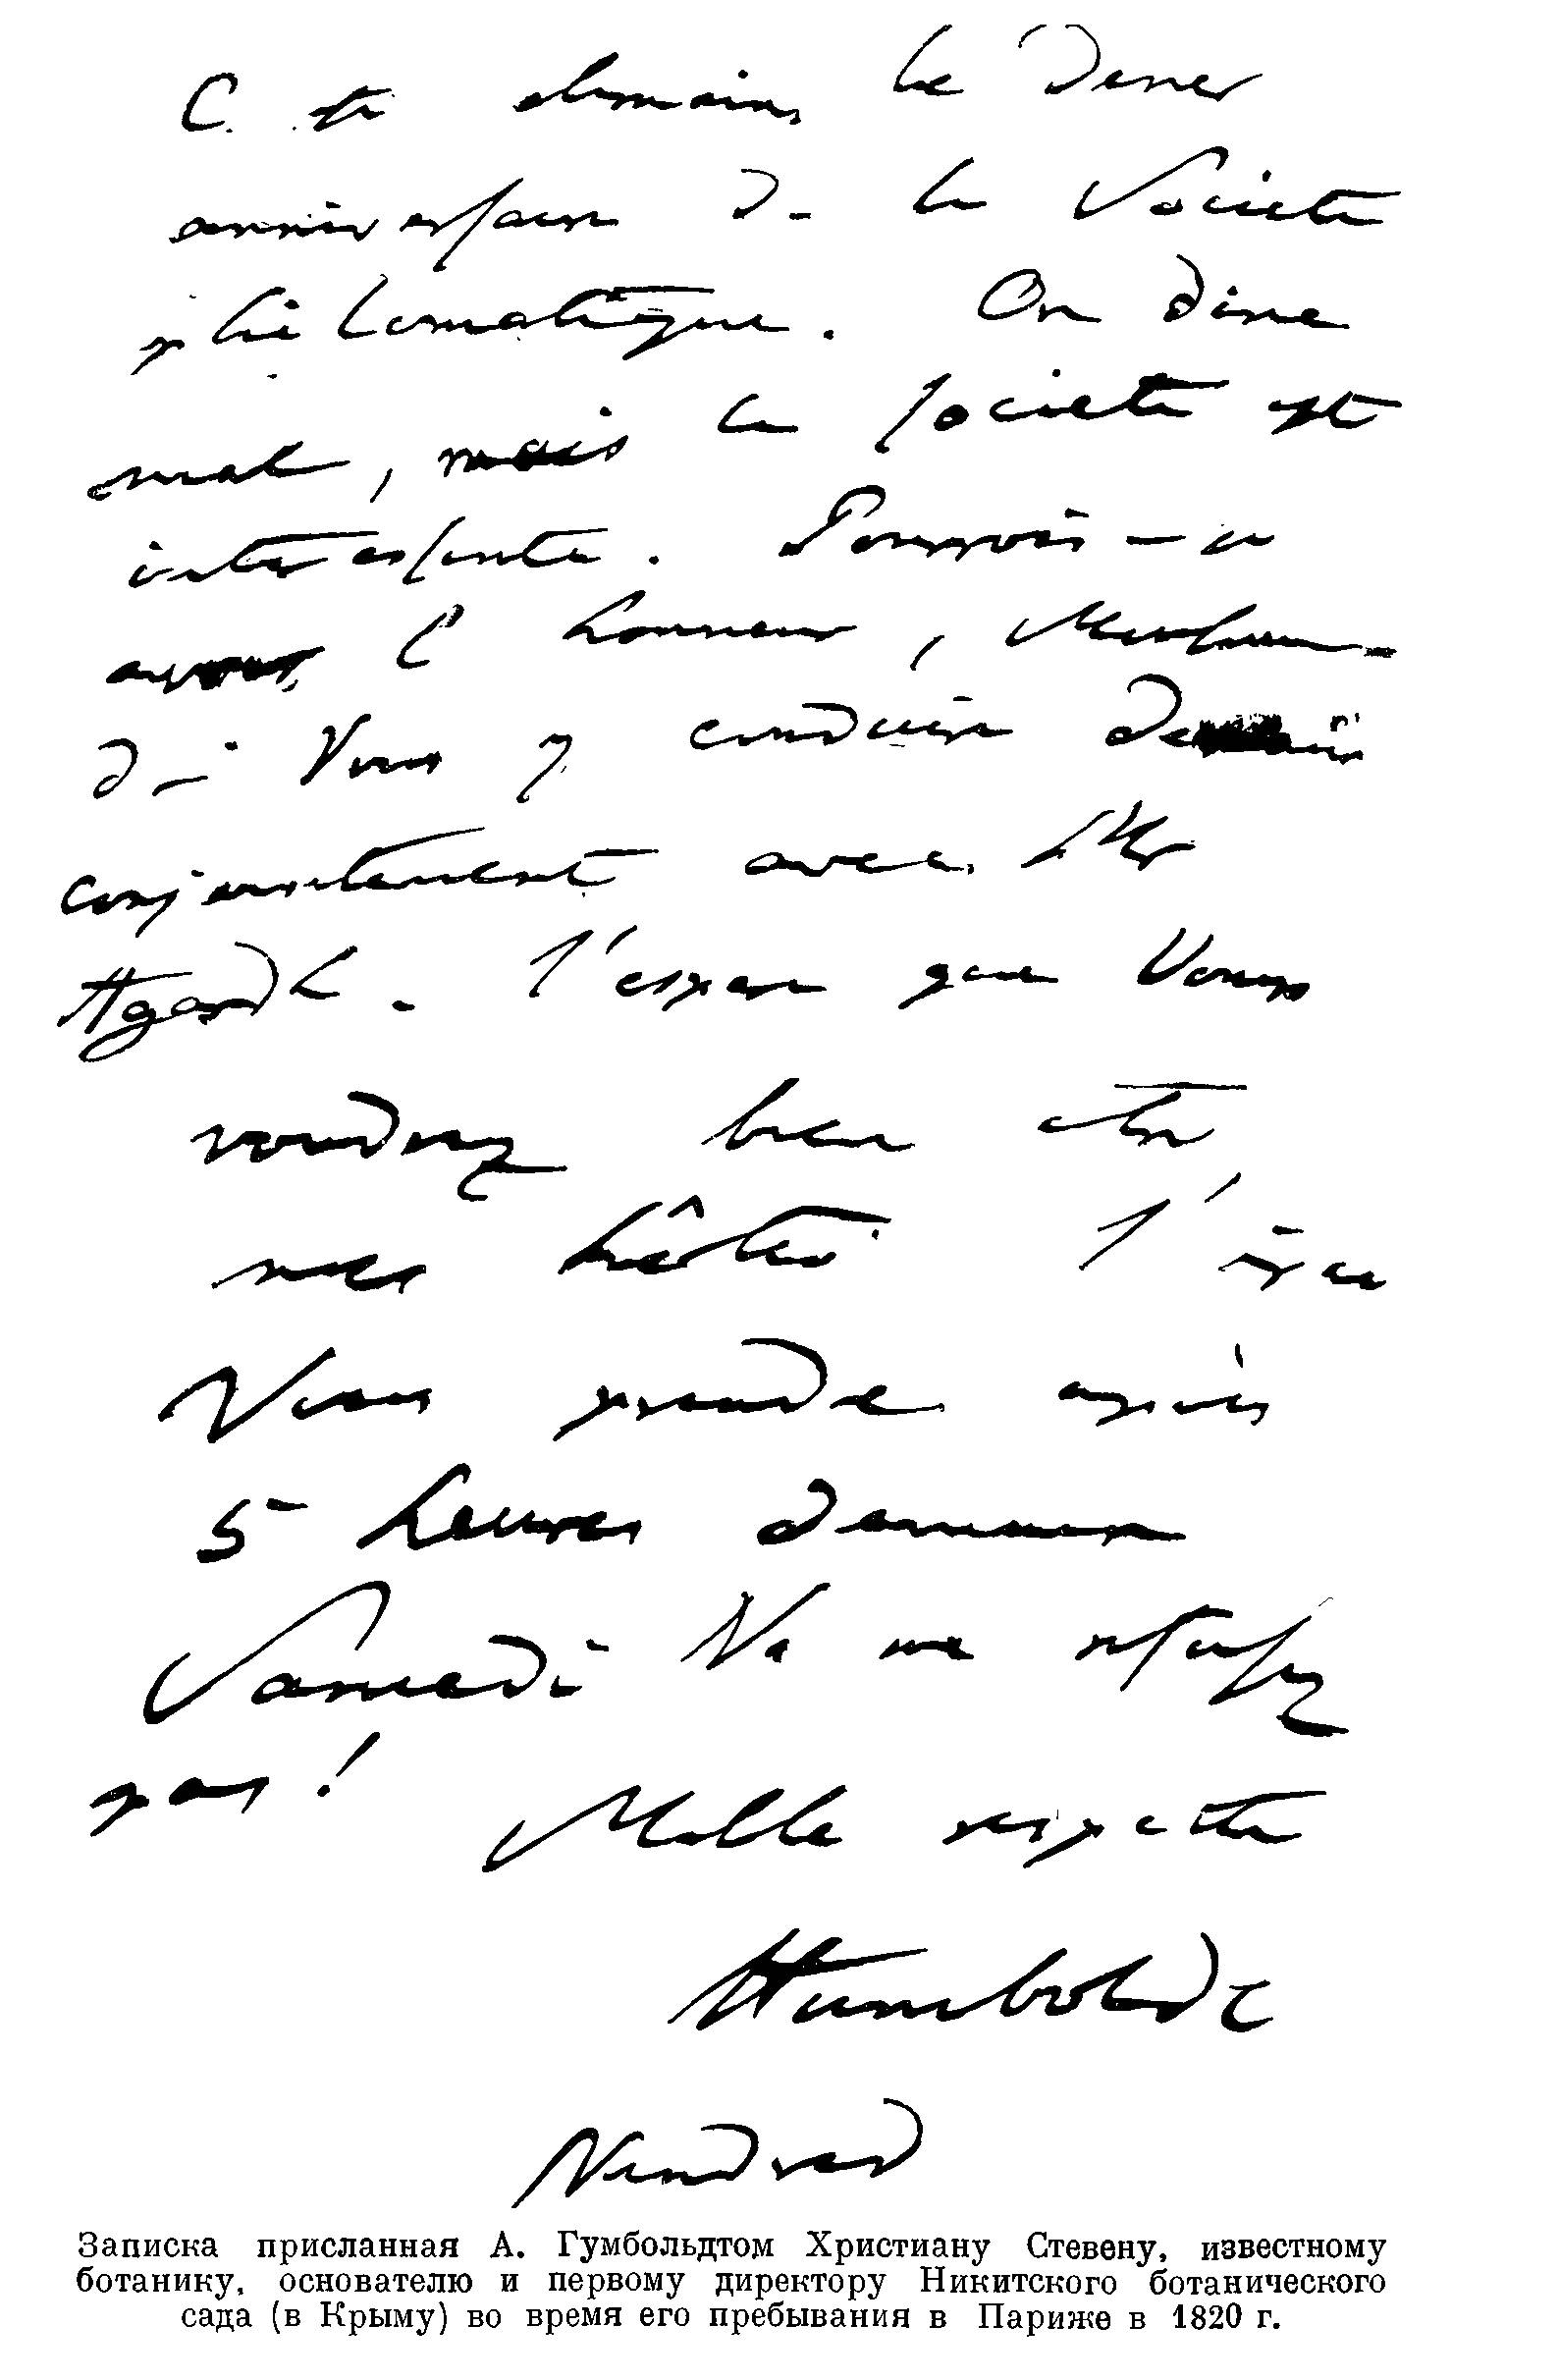 C'est demain le diner
anniversaire de la Societé
philomatique. On dine
mal, mais la societé est
interessante. Pourrois-je
avoir l'honneur, Monsieur
de Vous y conduire demain
conjointement avec Mr
Agardh. J'espere que Vous
voudrez bien etre
mes hôtes. J'irai
Vous prendre après
5 heures demain
Samedi Ne me refusez
pas!
Mille respects
Humboldt
Vendred
Записка присланная А. Гумбольдтом Христиану Стевену, известному
ботанику, основателю и первому директору Никитского ботанического
сада (в Крыму) во время его пребывания в Париже в 1820 г.